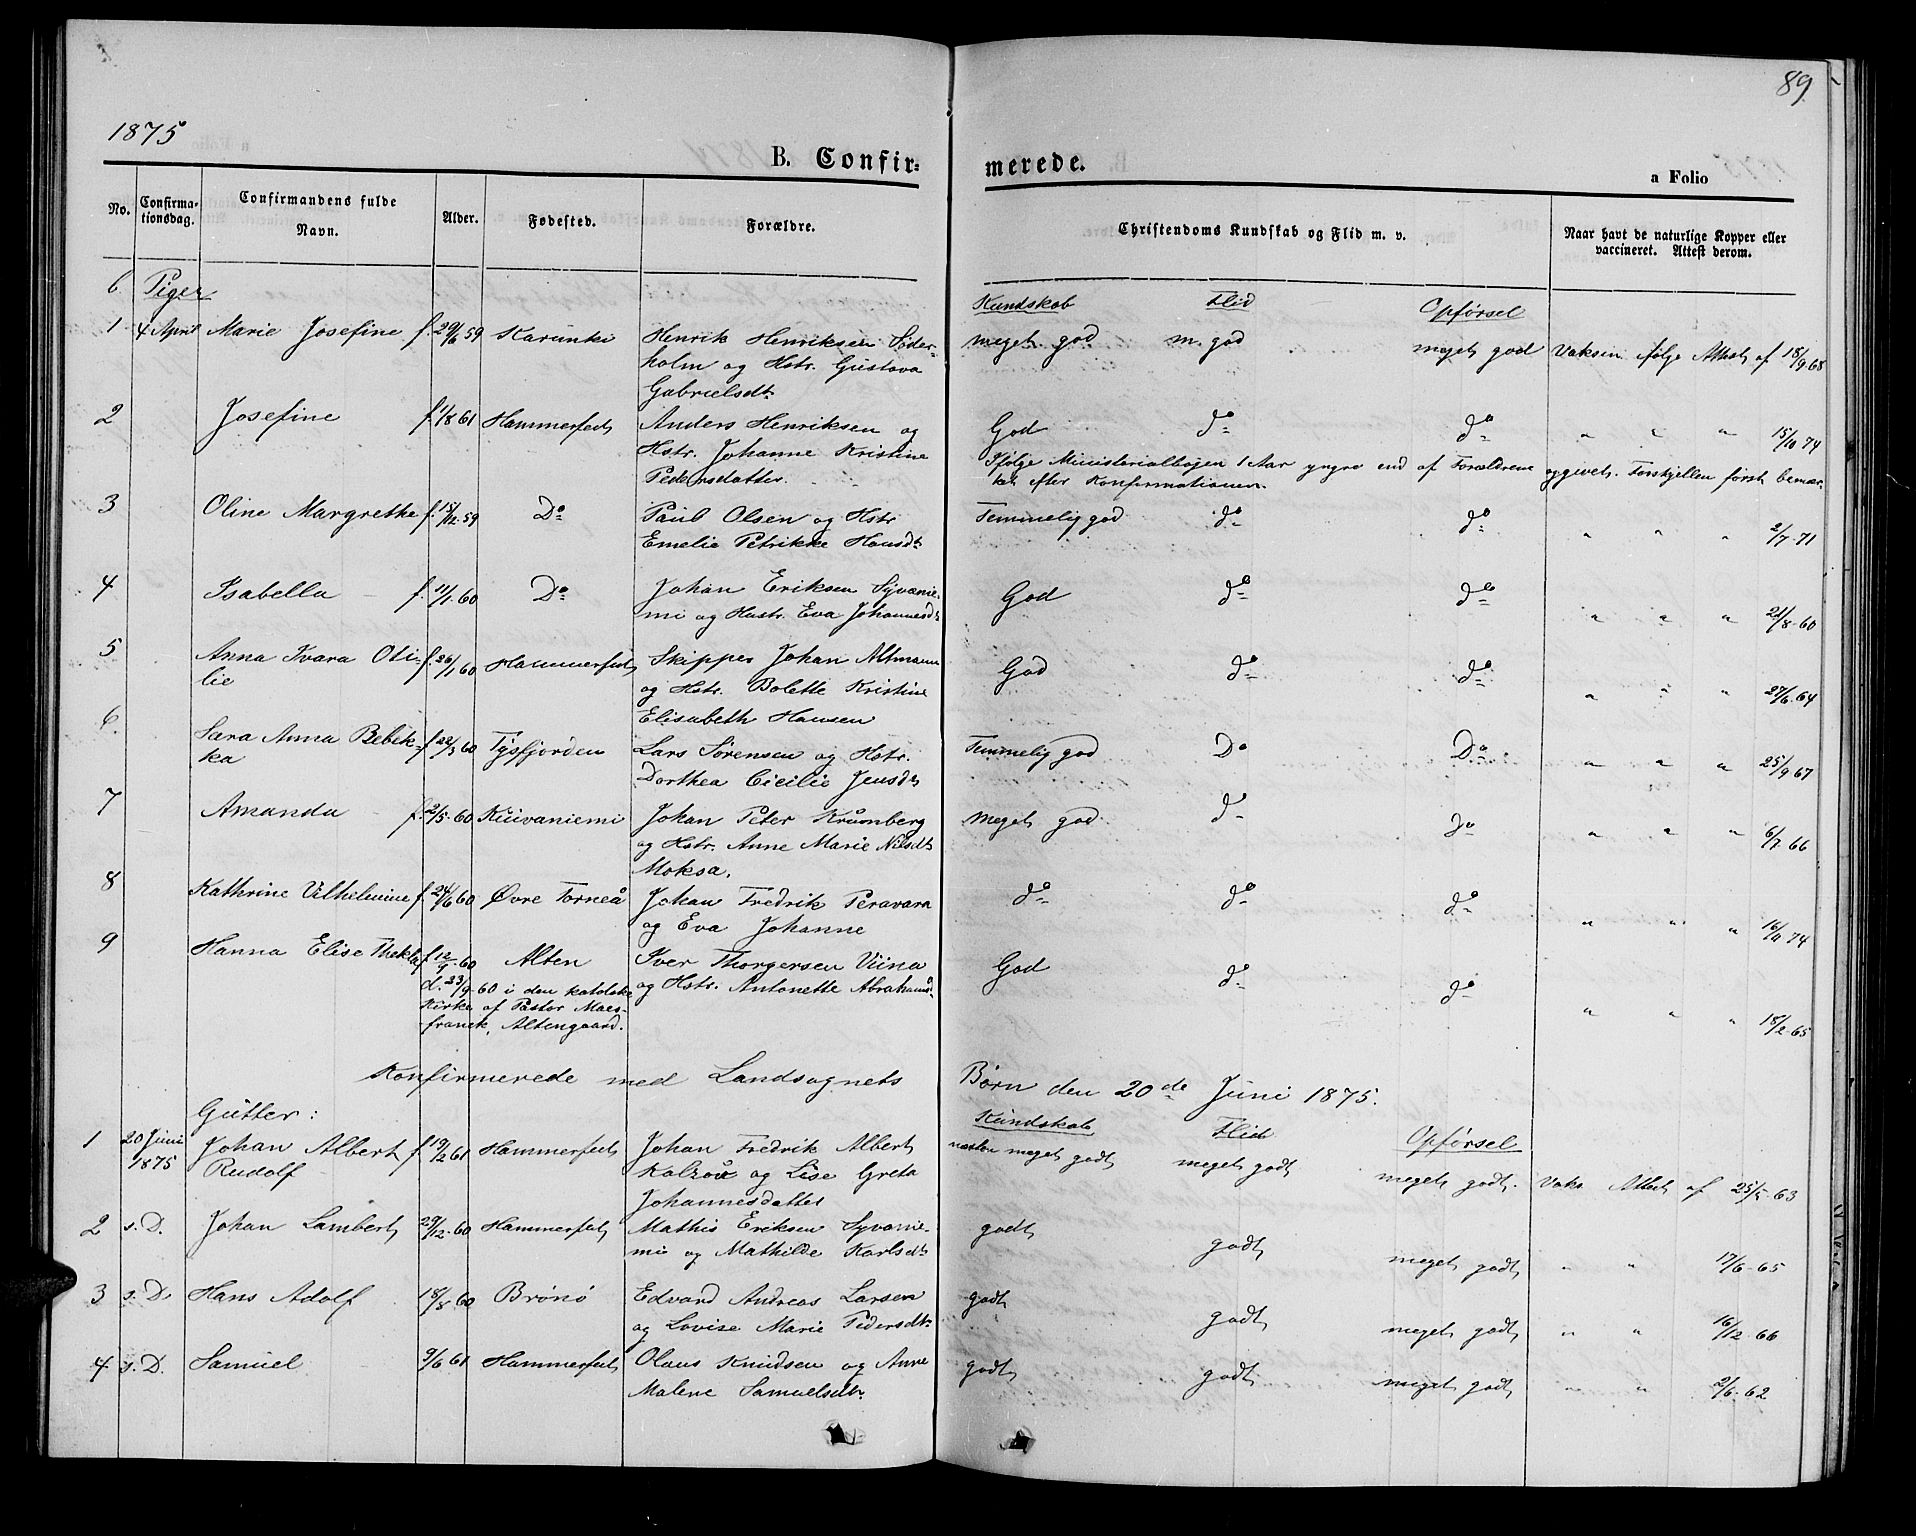 89
1875
B. Confir- merede.
a Folio
No. Confirma-tionsdag. Confirmandens fulde Navn. Alder. Fødested. Forældre. Christendoms Kundskab og Flid m. v. Naar havt de naturlige Kopper eller vaccineret. Attest derom.
6 Piger Kundskab Flid Opførsel
1 4 April Marie Josefine f. 29/6 59 Karunki Henrik Henriksen Søder- meget god m. god meget god Vaksin. ifølge Attest af 18/9 68
holm og Hstr. Gustava
Gabrielsdt.
2 Josefine f. 1/8 61 Hammerfest Anders Henriksen og God do do " " " 15/10 74
Hstr. Johanne Kristine Ifølge Ministerialbogen 1 Aar yngre end af Forældrene opgivet. Forskjellen først bemær-
Pedersdatter. ket efter Konfirmationen.
3 Oline Margrethe f. 15/12 59 Do Paul Olsen og Hstr. Temmelig god do do " " " 2/7 71
Emelie Petrikke Hansdt.
4 Isabella f. 11/1 60 Do Johan Eriksen Syvanie- God do do " " " 21/8 60
mi og Hustr. Eva Johannesdt.
5 Anna Ivara Oti- f. 26/1 60 Hammerfest Skipper Johan Altmann God do do " " " 27/6 64
lie og Hstr. Bolette Kristine
Elisabeth Hansen
6 Sara Anna Rebek- f. 22/3 60 Tysfjorden Lars Sørensen og Hstr. Temmelig god Do Do " " " 25/9 67
ka Dorthea Cicilie Jensdt.
7 Amanda f. 2/5 60 Kuivaniemi Johan Peter Krumberg meget god do do " " " 6/7 66
og Hstr. Anne Marie Nilsdt.
Moksa.
8 Kathrine Vilhelmine f. 24/6 60 Øvre Torneå Johan Fredrik Peravara do do do " " " 16/11 74
og Eva Johanne
9 Hanna Elise Thekla f. 12/9 60 Alten Iver Thorgersen Viina God do do " " " 18/2 65
d. 23/9 60 i den katolske og Hstr. Antonette Abrahamsdt.
Kirke af Pastor Maes-
franck, Altengaard.
Konfirmerede med Landsognets Børn den 20de Juni 1875.
Gutter: Kundskab Flid Opførsel
1 20 Juni Johan Albert f. 19/2 61 Hammerfest Johan Fredrik Albert næsten meget godt meget godt meget godt. Vaks. Attest af 25/5 63
1875 Rudolf og Lise Greta
Johannesdatter
2 s. D. Johan Lambert 29/12 60 Hammerfest Mathis Eriksen Syvanie- godt godt meget godt " " 17/6 65
mi og Mathilde Karlsdt.
3 s. D. Hans Adolf 18/8 60 Brønø Edvard Andreas Larsen godt godt meget godt " " 16/12 66
og Lovise Marie Pedersdt.
4 s. D. Samuel 9/6 61 Hammerfest Olaus Knudsen og Anne godt godt meget godt " " 2/6 62
Malene Samuelsdt.